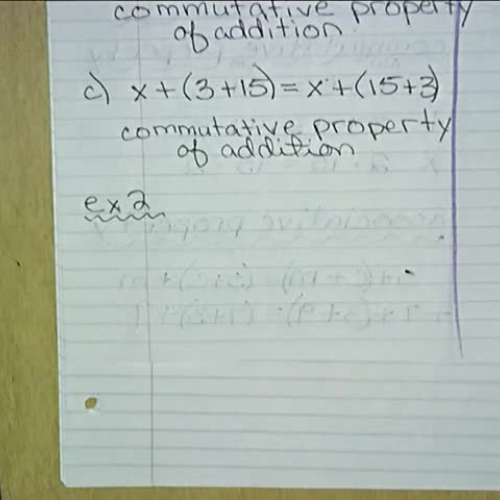 commutative property
of addition
c) x + (3+15) = x + (15+3)
commutative property
of addition
ex 2